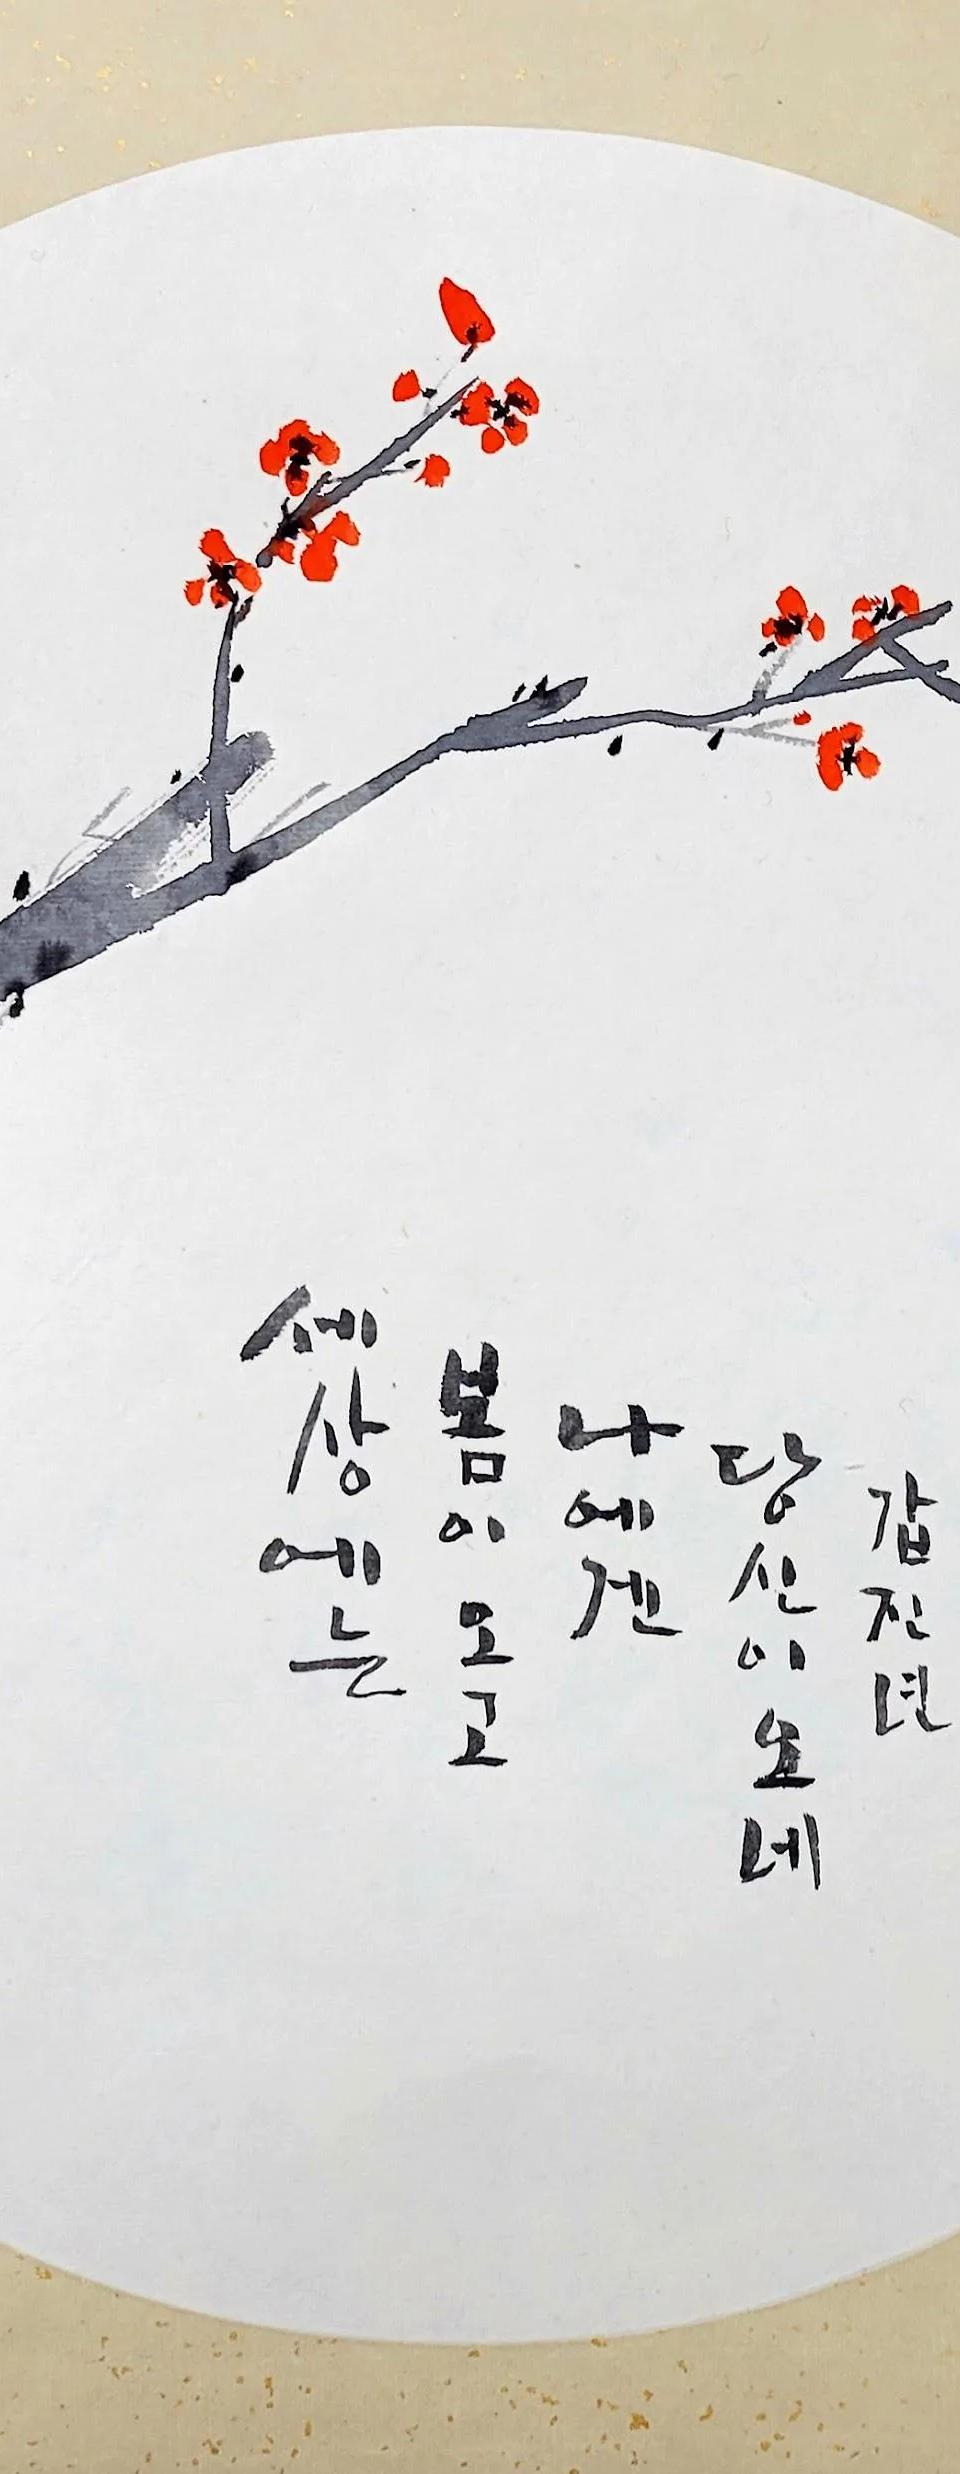 세상에는
봄이 오고
나에겐
당신이 오네
갑진년